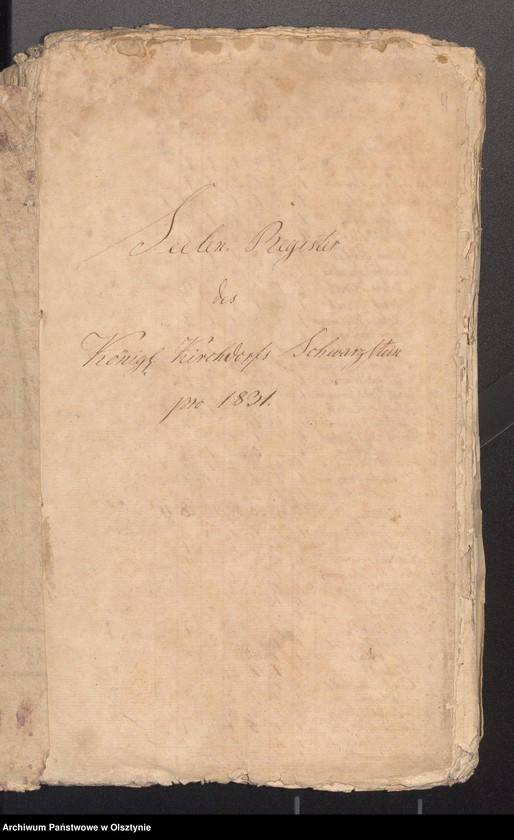 Seelen-Register
des
Königl Kirchdorfs Schwarzstein
pro 1831.
Archiwum Państwowe w Olsztynie